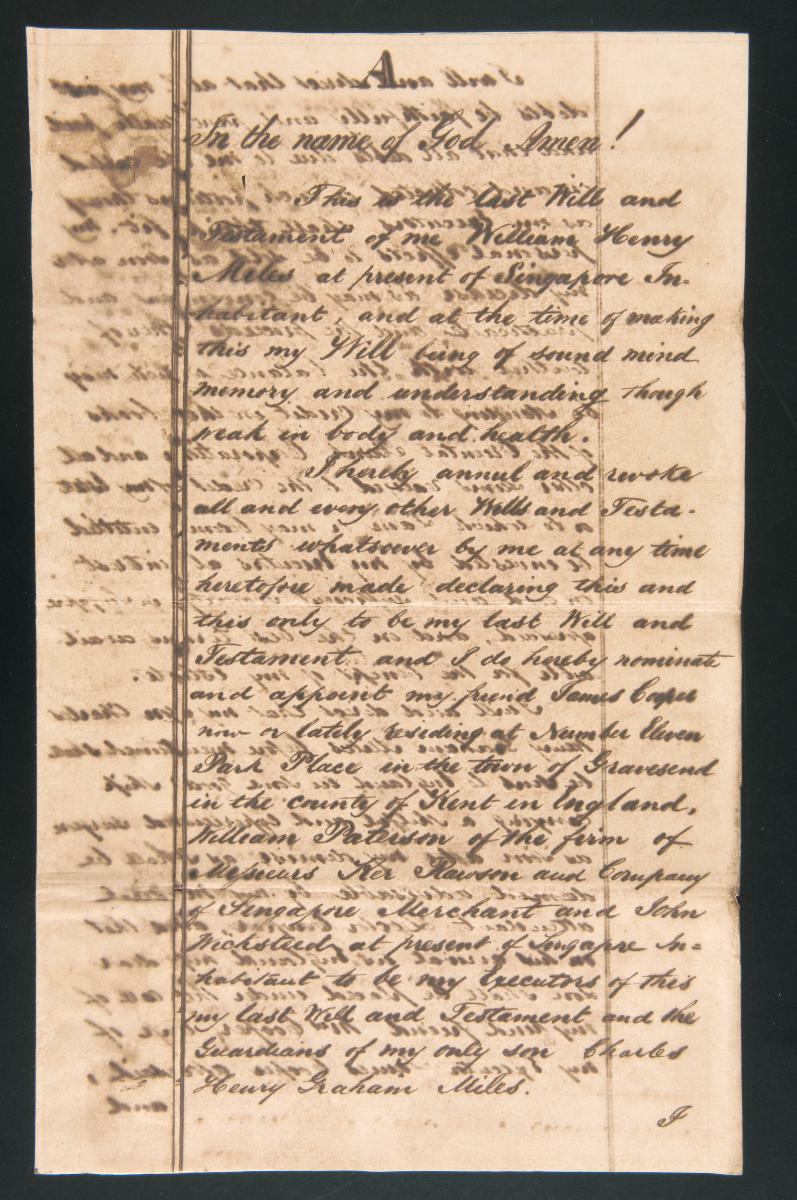 A
In the name of God Amen!
This is the last Will and
Testament of me William Henry
Miles at present of Singapore In=
habitant, and at the time of making
this my Will being of sound mind
memory and understanding though
weak in body and health.
I hereby annul and revoke
all and every other Wills and Testa-
ments whatsoever by me at any time
heretofore made declaring this and
this only to be my last Will and
Testament and I do hereby nominate
and appoint my friend James
now or lately residing at Number Eleven
Park Place in the town of Gravesend
in the county of Kent in England,
William Paterson of the firm of
Messieurs Ker Rawson and Company
of Singapore Merchant and John
Wicksteed at present of Singapre In=
habitant to be my Executors of this
my last Will and Testament and the
Guardians of my only son Charles
Henry Graham Miles.
I